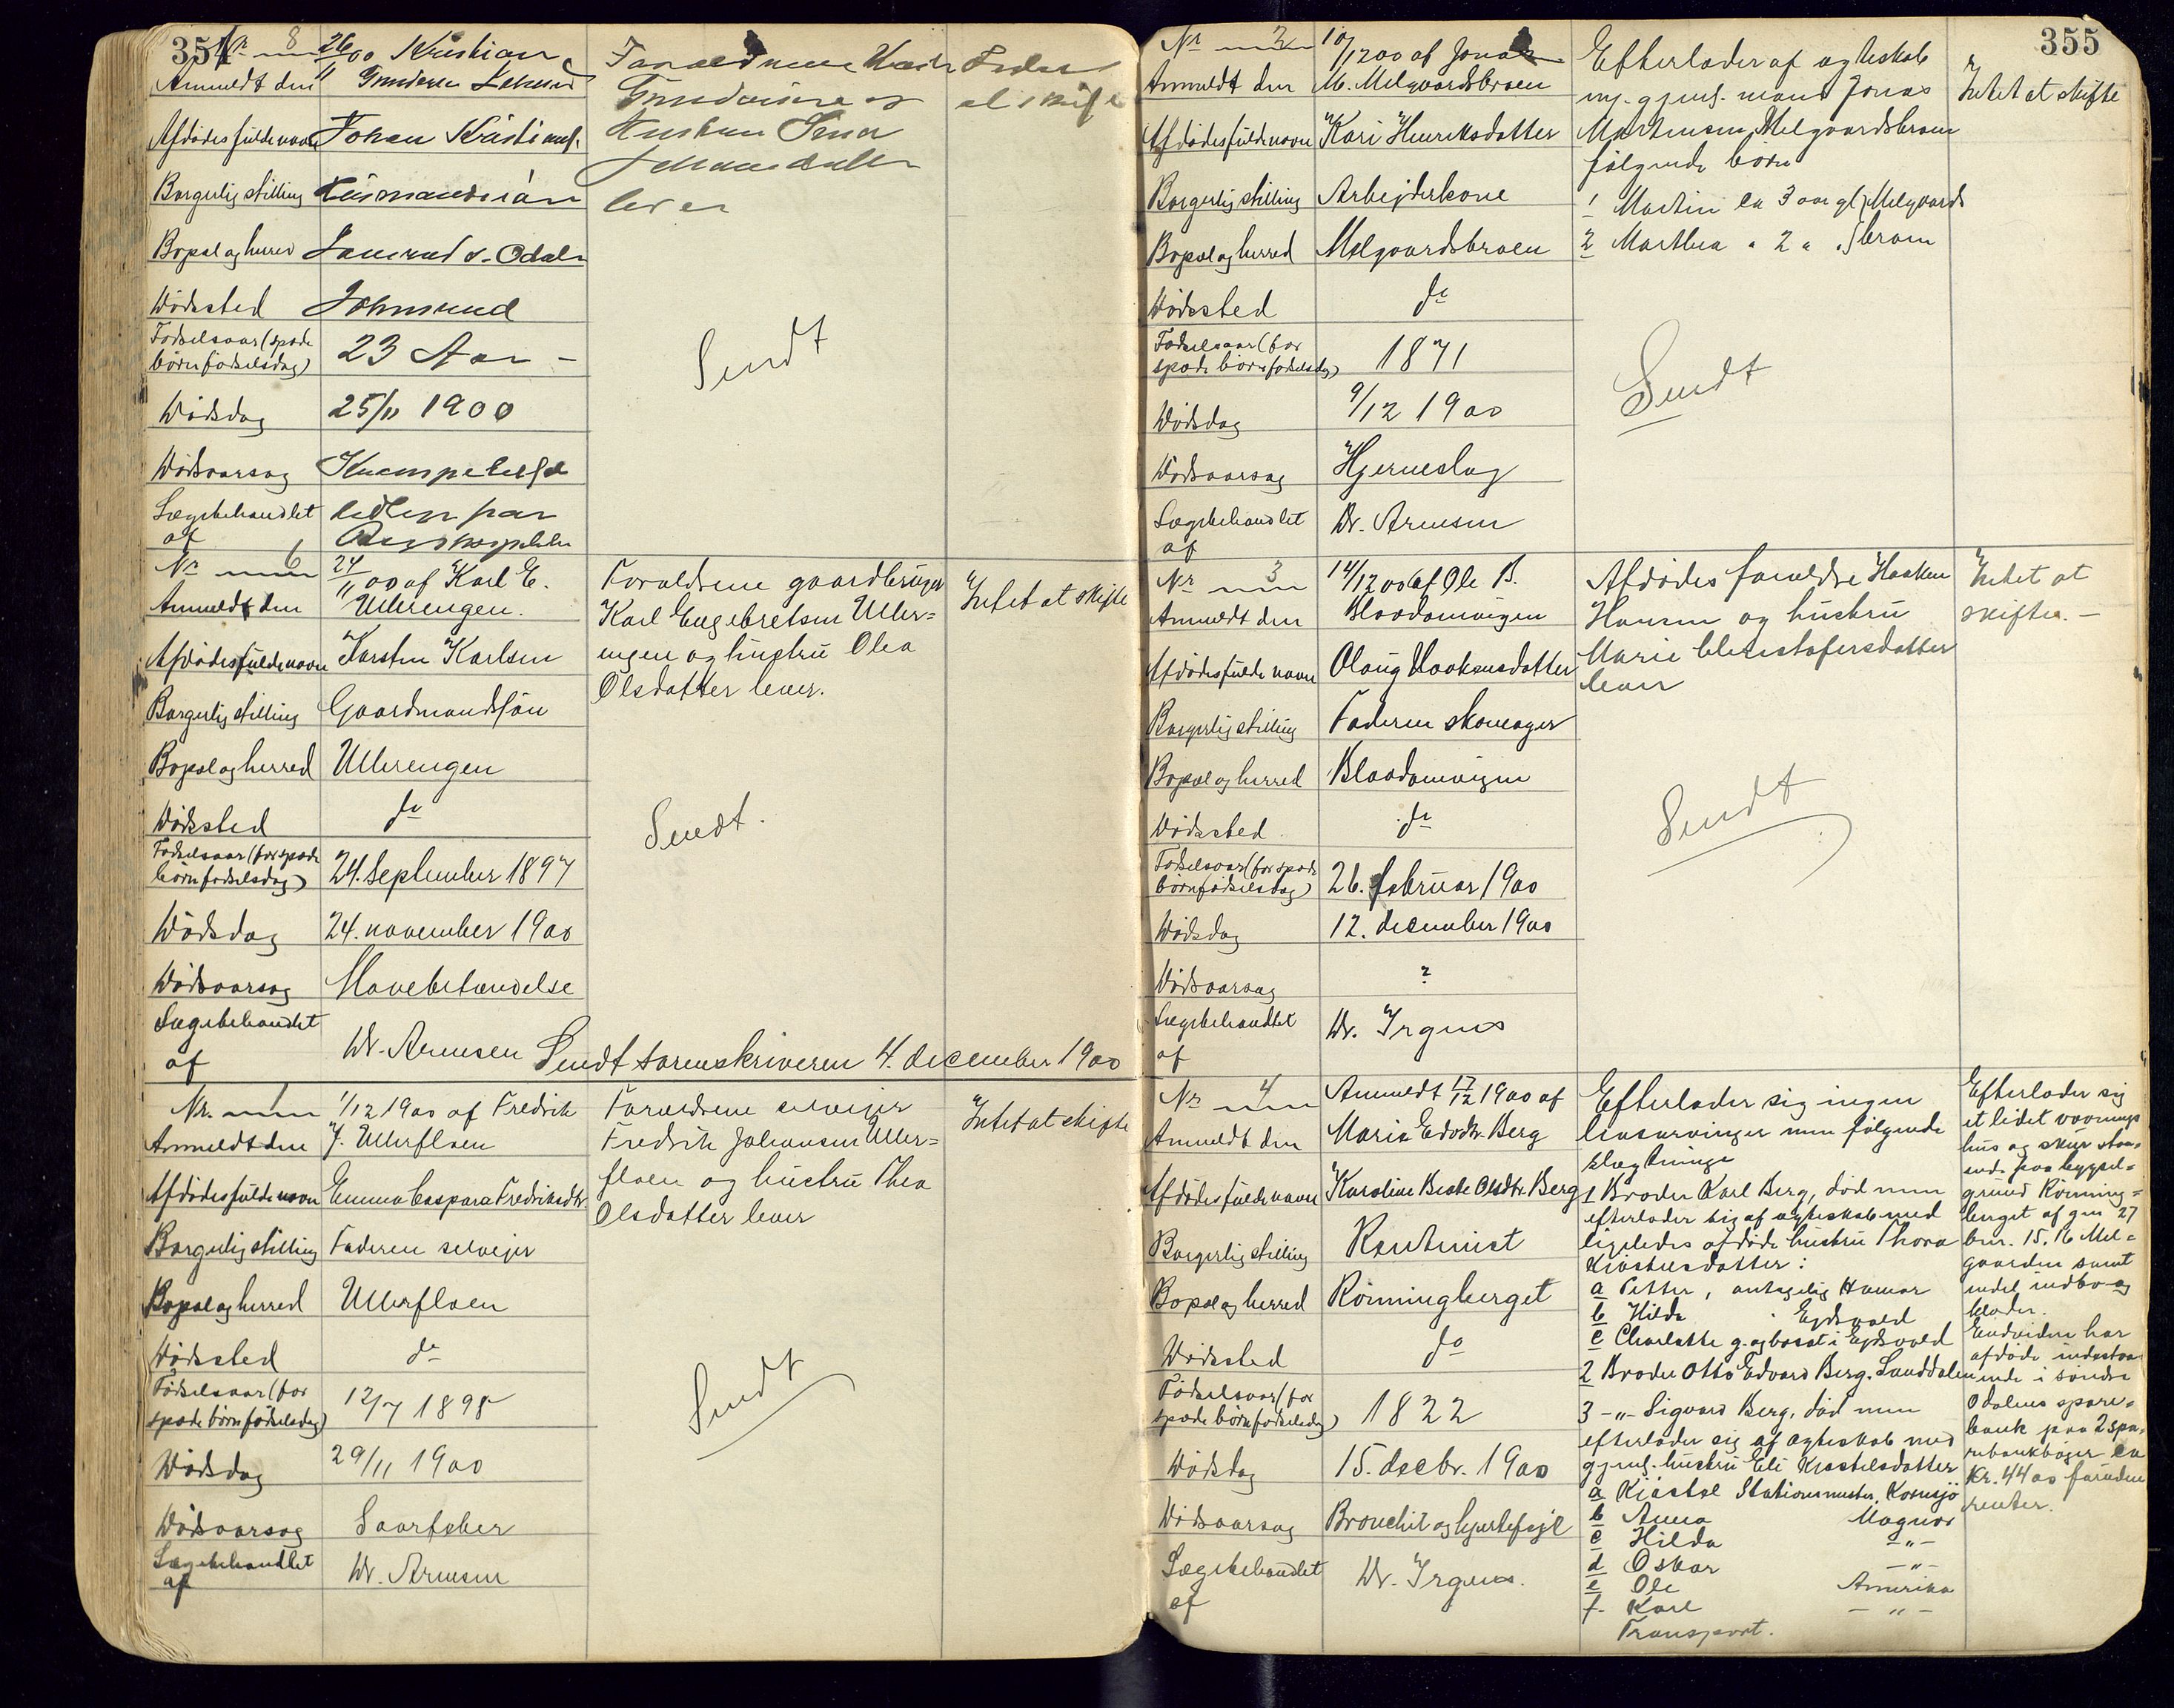 354
Nr 8 26/11 00 Kristian
Anmeldt den
Afdødes fulde navn Johan Kristians.
Borgerlig stilling Husmandssøn
Bopæl og herred s. Odalen
Dødssted
Fødselsaar (spæde
børn fødselsdag) 23 Aar -
Dødsdag 25/11 1900
Dødsaarsag
Lægebehandlet
af
Forældrene
Hustru
lever
Intet
at skifte
Sendt
Nr 6 24/11 00 af Karl E.
Anmeldt den Ullerengen.
Afdødes fulde navn Karsten Karlsen
Borgerlig stilling Gaardmandssøn
Bopæl og herred Ullerengen
Dødssted do
Fødselsaar (for spæde
børn fødselsdag) 24. september 1897
Dødsdag 24. november 1900
Dødsaarsag Mavebetændelse
Lægebehandlet
af Dr. Arnesen
Forældrene gaardbruger
Karl Engebretsen Uller=
engen og hustru Olea
Olsdatter lever.
Intet at skifte
Sendt.
Sendt sorenskriveren 4. december 1900
Nr. 1 1/12 1900 af Fredrik
Anmeldt den J. Ullerfloen
Afdødes fulde navn Emma Caspara Fredriksdtr.
Borgerlig stilling Faderen selveier
Bopæl og herred Ullerfloen
Dødssted do
Fødselsaar (for
spæde børn fødselsdag) 12/7 1898
Dødsdag 29/11 1900
Dødsaarsag
Lægebehandlet
af Dr. Arnesen
Forældrene selveier
Fredrik Johansen Uller=
floen og hustru Thea
Olsdatter lever
Intet at skifte
Sendt
355
Nr 2 10/12 00 af Jonas
Anmeldt den M. Melgaardsbraen
Afdødes fulde navn Kari Henriksdatter
Borgerlig stilling Arbeiderkone
Bopæl og herred Melgaardsbraen
Dødssted do
Fødselsaar (for
spæde børn fødselsdag) 1871
Dødsdag 9/12 1900
Dødsaarsag Hjerneslag
Lægebehandlet
af Dr. Arnesen
Efterlader af ægteskab
m. gjenl. mand Jonas
Martinsen Melgaardsbraen
følgende børn
1 Martin ca 3 aar gl } Melgaards
2 Marthea " 2 " " } braen
Intet at skifte
Sendt
Nr 3 14/12 00 af Ole B.
Anmeldt den
Afdødes fulde navn Olaug Haakensdatter
Borgerlig stilling Faderen skomager
Bopæl og herred
Dødssted do
Fødselsaar (for spæde
børn fødselsdag) 26. februar 1900
Dødsdag 12. december 1900
Dødsaarsag ?
Lægebehandlet
af Dr. Irgens
Afdødes forældre Haaken
Hansen og hustru
Marie Christofersdatter
lever
Intet at
skifte. -
Sendt
Nr 4 Anmeldt 17/12 1900 af
Anmeldt den Maria Edvdtr. Berg
Afdødes fulde navn Karoline Beate Olsdtr. Berg
Borgerlig stilling Rentenist
Bopæl og herred Rønningberget
Dødssted do
Fødselsaar (for
spæde børn fødselsdag) 1822
Dødsdag 15. decbr. 1900
Dødsaarsag Bronchit og hjertefejl
Lægebehandlet
af Dr. Irgens.
Efterlader sig ingen
livsarvinger men følgende
slægtninge
1 Broder Karl Berg, død men
efterlader sig af ægteskab med
ligeledes afdøde hustru Thora
Kjøstelsdatter:
a Petter, antagelig Hamar
b Hilda " Ejdsvold
c Charlotte g. og bosat i Ejdsvold
2 Broder Otto Edvard Berg.
3 -"- Sigvard Berg, død men
efterlader sig af ægteskab med
gjenl. hustru Eli Kjøstelsdatter
a Kjøstel Stationsmester, Kornsjø
b Anna Magnor
c Hilda -"-
d Oskar -"-
e Ole Amerika
f. Karl -"-
Transport.
Efterlader sig
et lidet vaanings
hus og skur staa-
ende paa byggsel=
grund Rønning=
berget af gnr 27
bnr. 15. 16 Mel=
gaarden samt
endel indbo og
klæder.
Endvidere har
afdøde indestaa
ende i søndre
Odalens spare=
bank paa 2 spa-
rebankbøger ca
Kr. 4400 foruden
renter.